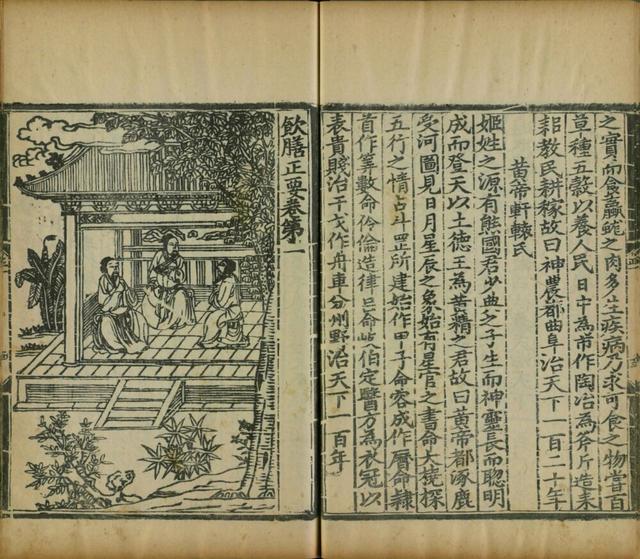 之實而食蠃蚌之肉多生疾病乃求可食之物嘗百
草種五穀以養人民日中為市作陶冶為斧斤造耒
耜教民耕稼故曰神農都曲阜治天下一百二十年
黃帝軒轅氏
姬姓之源有熊國君少典之子生而神靈長而聰明
成而登天以土德王為黃精之君故曰黃帝都涿鹿
受河圖見日月星辰之象始有星官之書命大撓探
五行之情占斗罡所建始作甲子命容成作曆命隸
首作筭數命伶倫造律呂命岐伯定醫方為衣冠以
表貴賤治干戈作舟車分州野治天下一百年
飲膳正要卷第一